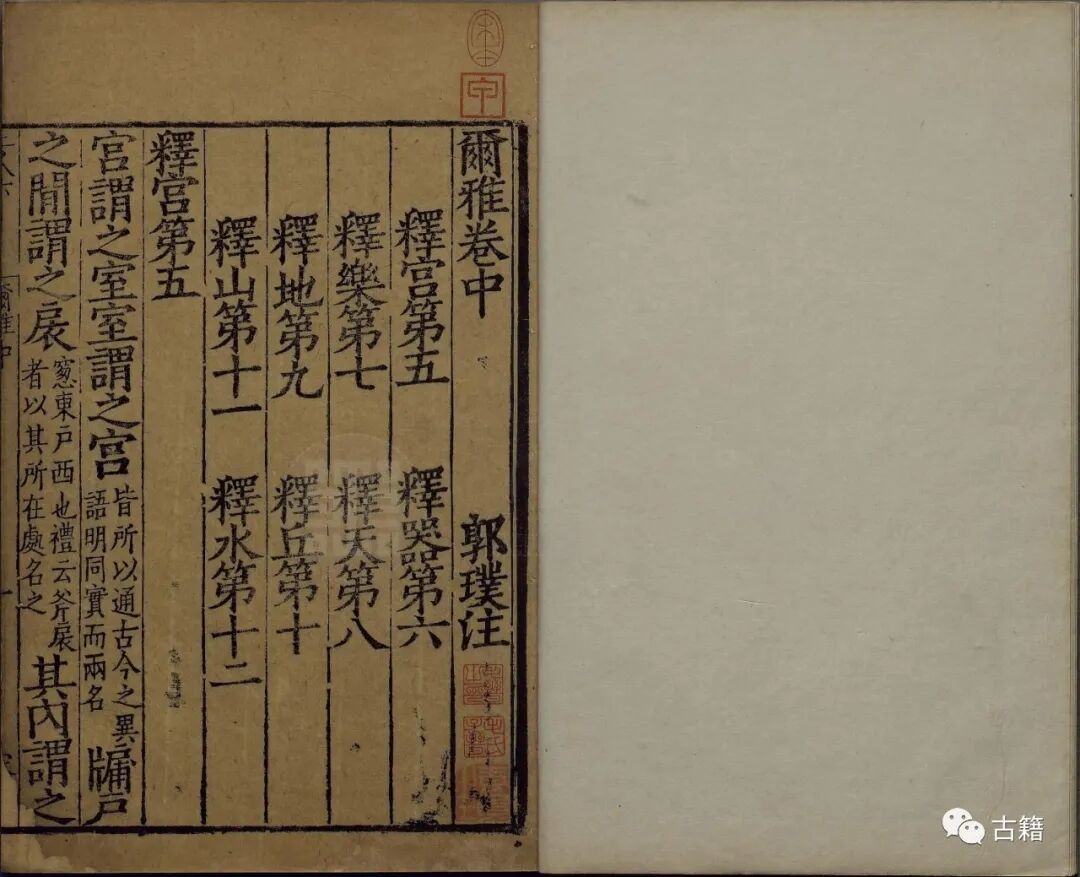 爾雅卷中 郭璞注
釋宫第五 釋器第六
釋樂第七 釋天第八
釋地第九 釋丘第十
釋山第十一 釋水第十二
釋宫第五
宫謂之室室謂之宫皆所以通古今之異語明同實而兩名牖戶
之間謂之扆窻東戶西也禮云斧扆者以其所在處名之其內謂之
爾雅中
古籍